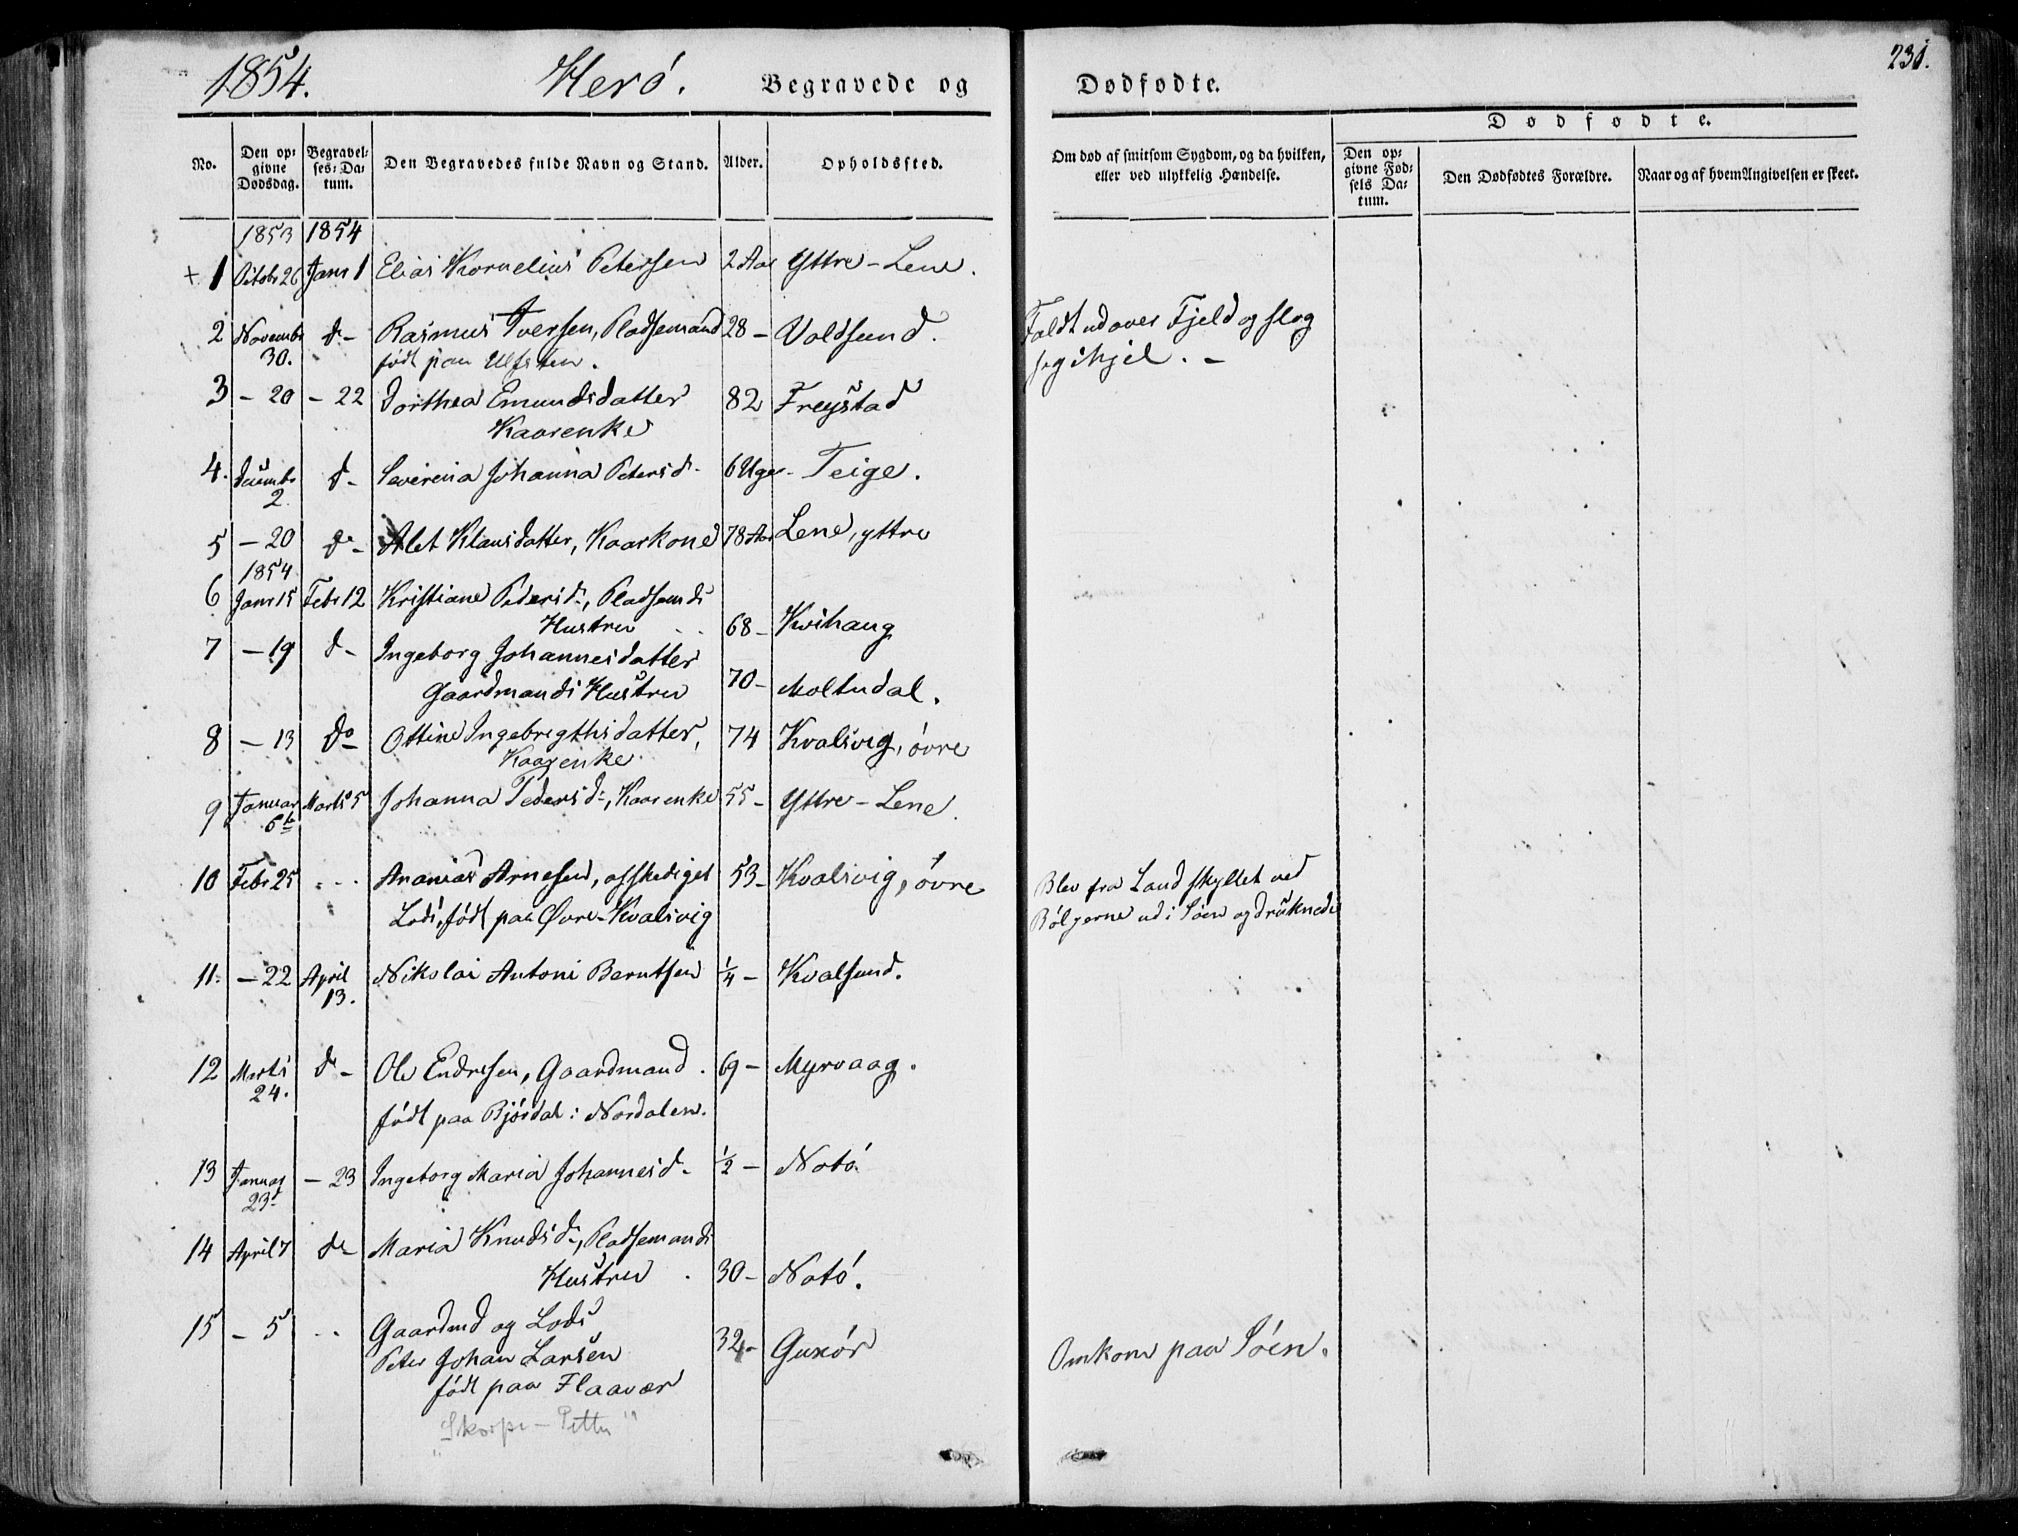 1854. Herö. Begravede og Dødfødte. 231.
No. Den opgivne Dødsdag. Begravelses-Datum. Den Begravedes fulde Navn og Stand. Alder. Opholdssted. Om død af smitsom Sygdom, og da hvilken, eller ved ulykkelig Hændelse. Dødfødte. Den opgivne Fødsels Datum. Den Dødfødtes Forældre. Naar og af hvem Angivelsen er skeet.
1853 1854
+ 1 Octobr 26 Janr 1 Elias Kornelius Petersen 2 Aar Yttre-Lene.
2 Novembr 30. do - Rasmus Iversen, Pladsemand 28 - Voldsund. Faldt ud over Fjeld og slog
født paa Ulfsten. sig ihjel. -
3 - 20 - 22 Dorthea Emundsdatter 82 Freystad
Kaarenke
4. Decembr 2. do - Severina Johanna Petersd. 6 Uger - Teige.
5 - 20 do - Alet Klausdatter, Kaarkone 78 Aar Lene, yttre
1854
6 Janr 15 Febr 12 Kristiane Pedersd., Pladsemds
Hustru 68 - Kvihaug
7 - 19 do - Ingeborg Johannesdatter
Gaardmands Hustru 70 - Moltudal.
8 - 13 do - Ottine Ingebrigthsdatter, 74 Kvalsvig, övre
Kaarenke
9 Januar 6te Marts 5 Johanna Pedersd., Kaarenke 55 - Yttre-Lene.
10 Febr 25 . . . Ananias Arnesen, afskediget 53 - Kvalsvig, övre Blev fra Land skyllet ved
Lods, født paa Øvre-Kvalsvig Bölgerne ud i Söen og druknede
11. - 22 April 13. Nikolai Antoni Berntsen 1/4 - Kvalsund.
12 Marts 24. do - Ole Endresen, Gaardmand. 69 - Myrvaag.
födt paa Bjórdal i Nordalen.
13 Januar 23. - 23 Ingeborg Maria Johannesd. 1/2 - Notö.
14 April 7 do - Maria Knudsd., Pladsemands
Hustru. 30 - Notö.
15 - 5 . . Gaardmd og Lods
Peter Johan Larsen 32 - Guxör Omkom paa Söen.
födt paa Flaavær
"Skorpe-Petter"